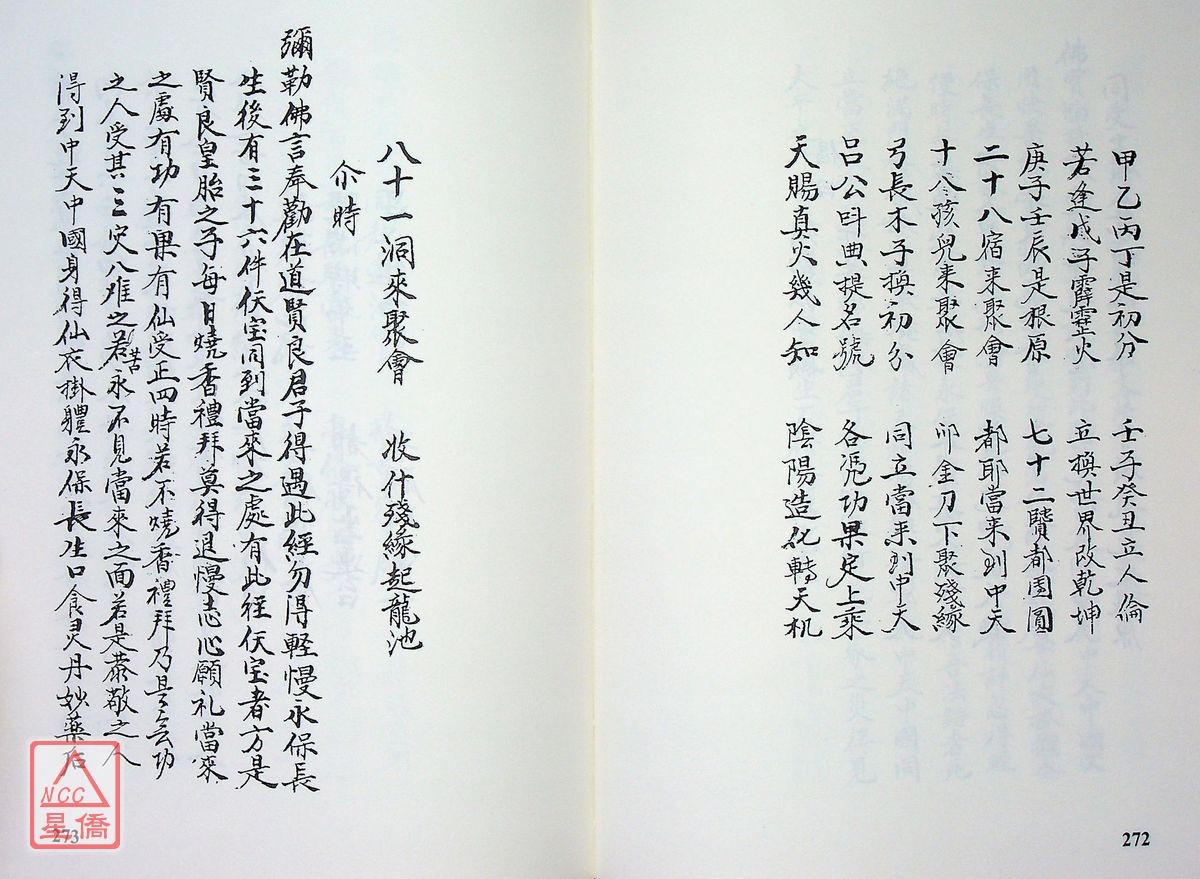 甲乙丙丁是初分　壬子癸丑立人倫
若逢戊子霹靂火　立換世界改乾坤
庚子壬辰是根原　七十二賢都团圓
二十八宿来聚會　都耶當来到中天
十八孩兒来聚會　卯金刀下聚殘緣
弓長木子換初分　同立當来到中天
呂公呌典提名號　各凴功果定上乘
天賜真火幾人知　陰陽造化轉天机
272
八十一洞來聚會　收什殘緣起龍池
尒時
彌勒佛言奉勸在道賢良君子得遇此經勿得軽慢永保長
生後有三十六件仸宝同到當來之處有此経仸宝者方是
賢良皇胎之子每日燒香禮拜莫得退慢志心願礼當來
之處有功有果有仙受正四時若不燒香禮拜乃是无功
之人受其三灾八难之若苦永不見當來之面若是恭敬之人
淂到中天中國身得仙衣掛體永保長生口食灵丹妙藥后
273
NCC
星僑